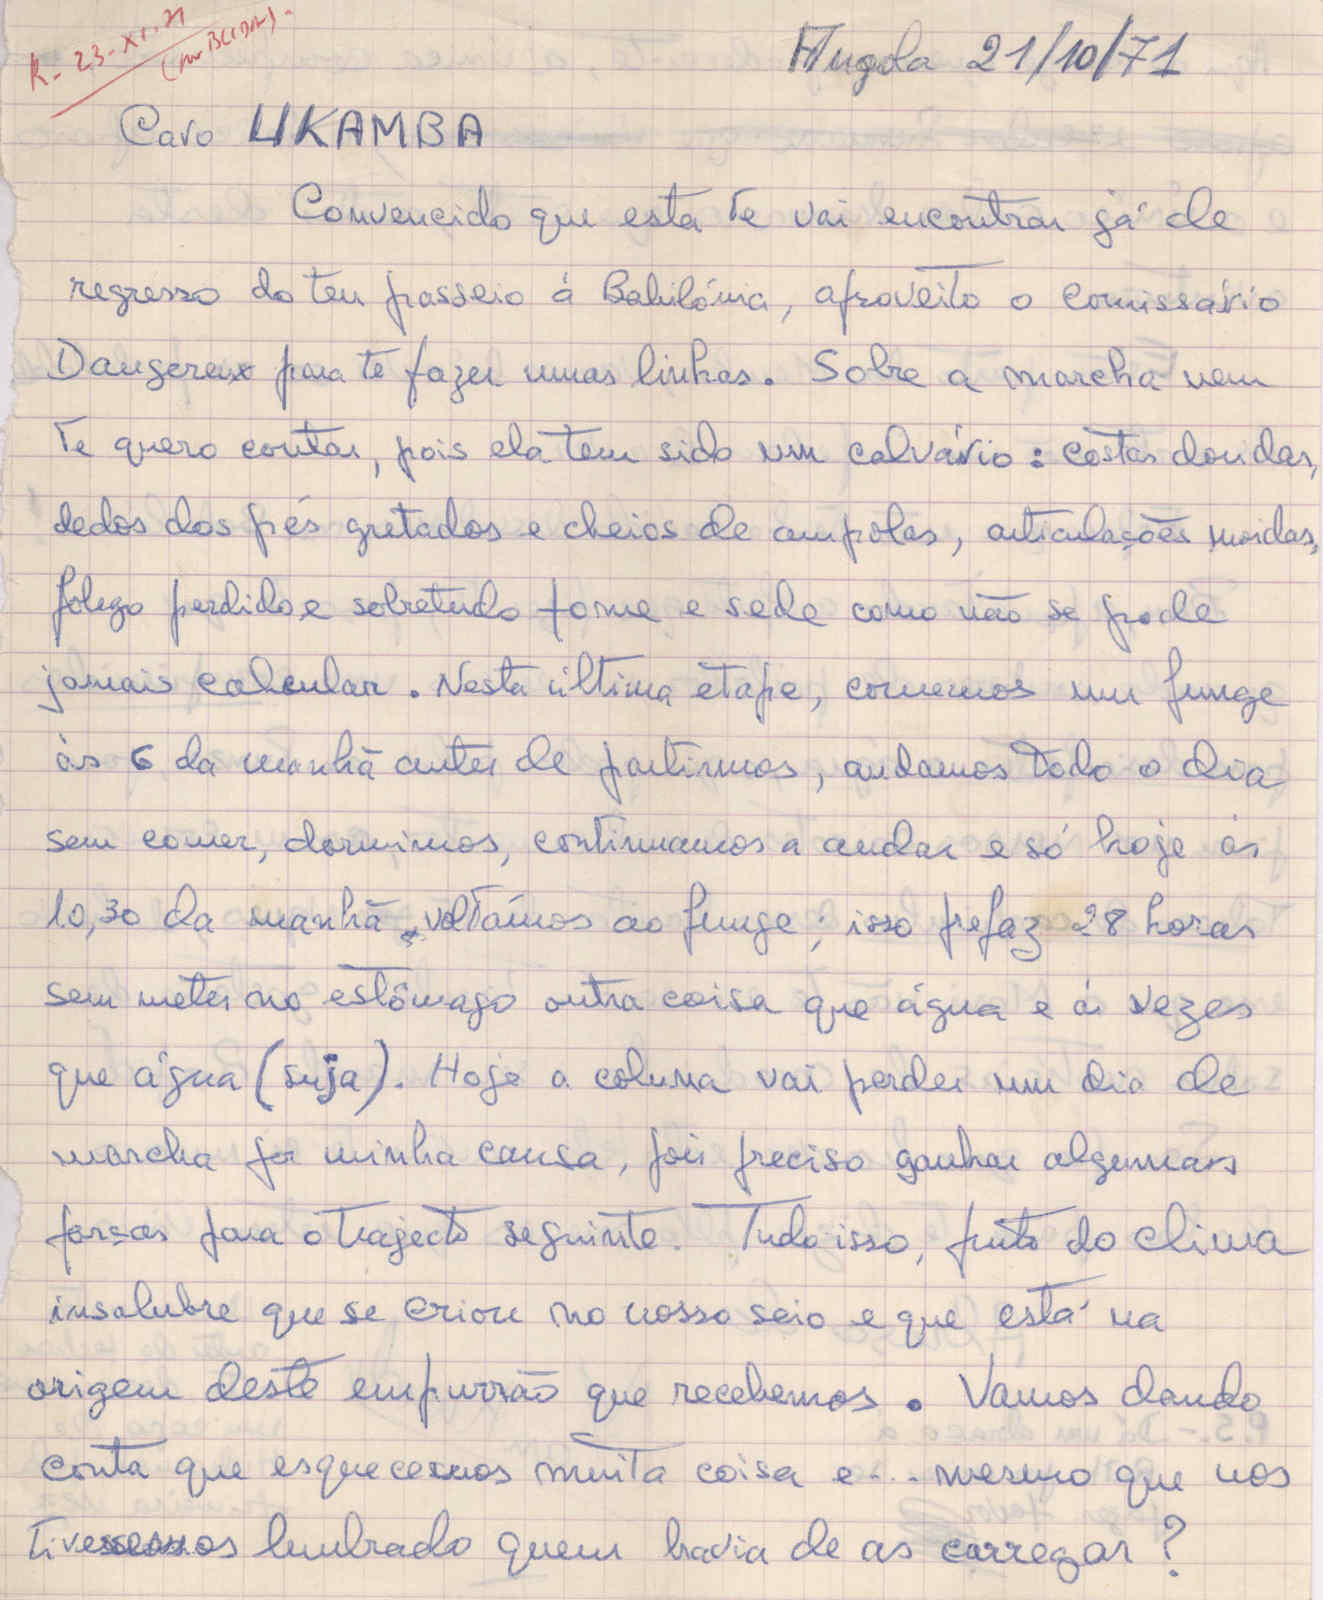 R- 23-XI-71
Angola 21/10/71
Caro UKAMBA
Convencido que esta te vai encontrar já de
regresso do teu passeio à Babilónia, aproveito o comissário
Dangereux para te fazer umas linhas. Sobre a marcha nem
te quero contar, pois ela tem sido um calvário: costas doridas,
dedos dos pés gretados e cheios de ampolas, articulações moidas,
folego perdido e sobretudo fome e sede como não se pode
jamais calcular. Nesta última etape, comemos um funge
às 6 da manhã antes de partirmos, andamos todo o dia
sem comer, dormimos, continuamos a andar e só hoje às
10,30 da manhã voltámos ao funge; isso prefaz 28 horas
sem meter no estômago outra coisa que água e às vezes
que água (suja). Hoje a coluna vai perder um dia de
marcha por minha causa, pois preciso ganhar algumas
forças para o trajecto seguinte. Tudo isso, fruto do clima
insalubre que se criou no nosso seio e que está na
origem deste empurrão que recebemos. Vamos dando
conta que esquecemos muita coisa e... mesmo que nos
tivessemos lembrado quem havia de as carregar?